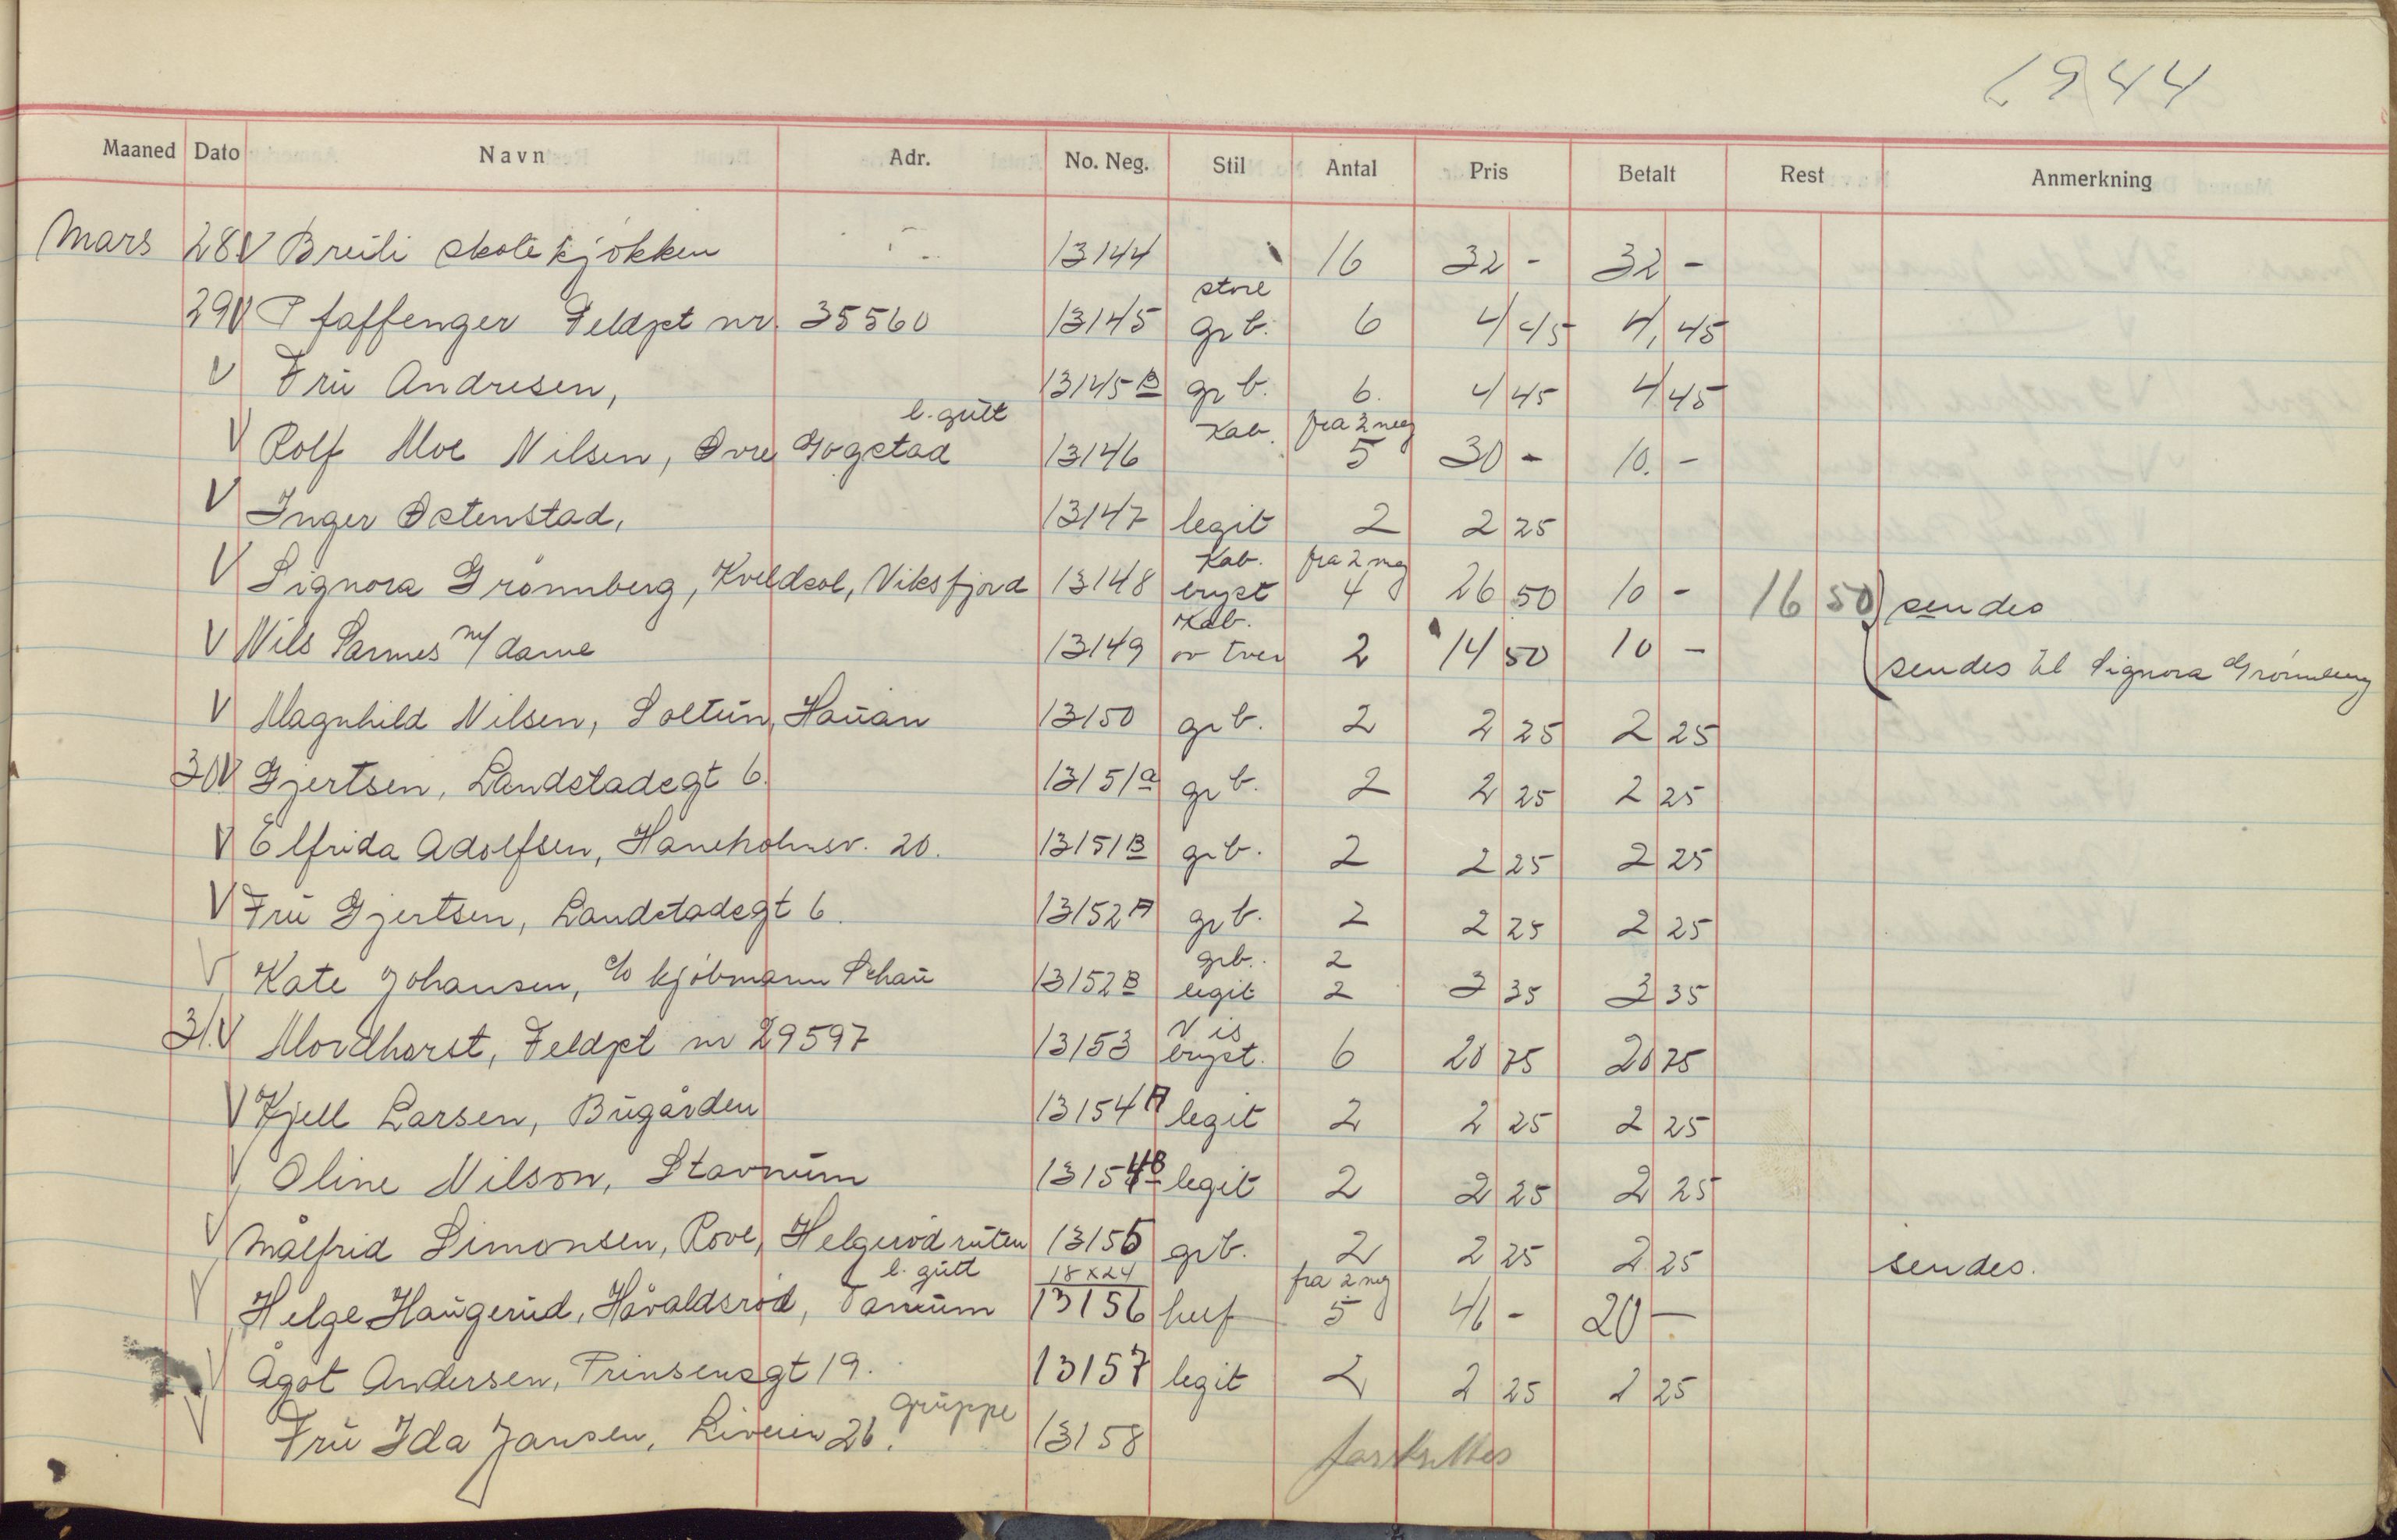 1944
Maaned Dato Navn Adr. No. Neg. Stil Antal Pris Betalt Rest Anmerkning
Mars 28 V Breili skolekjøkken 13144 16 32 - 32 -
store
29 V Pfaffenger Feldpt nr. 35560 13145 gr b. 6 4 45 4, 45
V Frü Andresen, 13145 B gr b. 6. 4 45 4 45
l. gütt Kab. fra 2 neg
V Rolf Moe Nilsen, Øvre Gogstad 13146 5 30 - 10. -
V Inger Østenstad, 13147 legit 2 2 25
Kab. fra 2 neg
V Signora Grønnberg, Kveldsol, Viksfjord 13148 bryst 4 26 50 10 - 16 50 sendes
Kab.
V Nils Sarmes m/ dame 13149 ov tver 2 14 50 10 - sendes til Signora Grønnberg
V Magnhild Nilsen, Soltün, Haüan 13150 gr b. 2 2 25 2 25
30 V Gjertsen, Landstadsgt 6. 13151 a gr b. 2 2 25 2 25
V Elfrida Adolfsen, Haneholmsv. 20. 13151 B gr b. 2 2 25 2 25
V Frü Gjertsen, Landstadsgt 6. 13152 A gr b. 2 2 25 2 25
grb. 2
V Kate Johansen, c/o kjøbmann Schaü 13152 B legit 2 3 35 3 35
Vis
31. V Mordhorst, Feldpt nr 29597 13153 bryst. 6 20 75 20 75
V Kjell Larsen, Bügården 13154 A legit 2 2 25 2 25
V Oline Nilson, Stavnüm 13154 B legit 2 2 25 2 25
V Målfrid Simonsen, Rove, Helgerød rüten 13155 grb. 2 2 25 2 25 sendes.
l. gütt 18 x 24 fra 2 neg
V Helge Haügerüd, Håvaldsrød, Tanüm 13156 huf 5 46 - 20 -
V Ågot Andersen, Prinsensgt 19. 13157 legit 2 2 25 2 25
grüppe
V Frü Ida Jansen, Liveien 26. 13158 forts